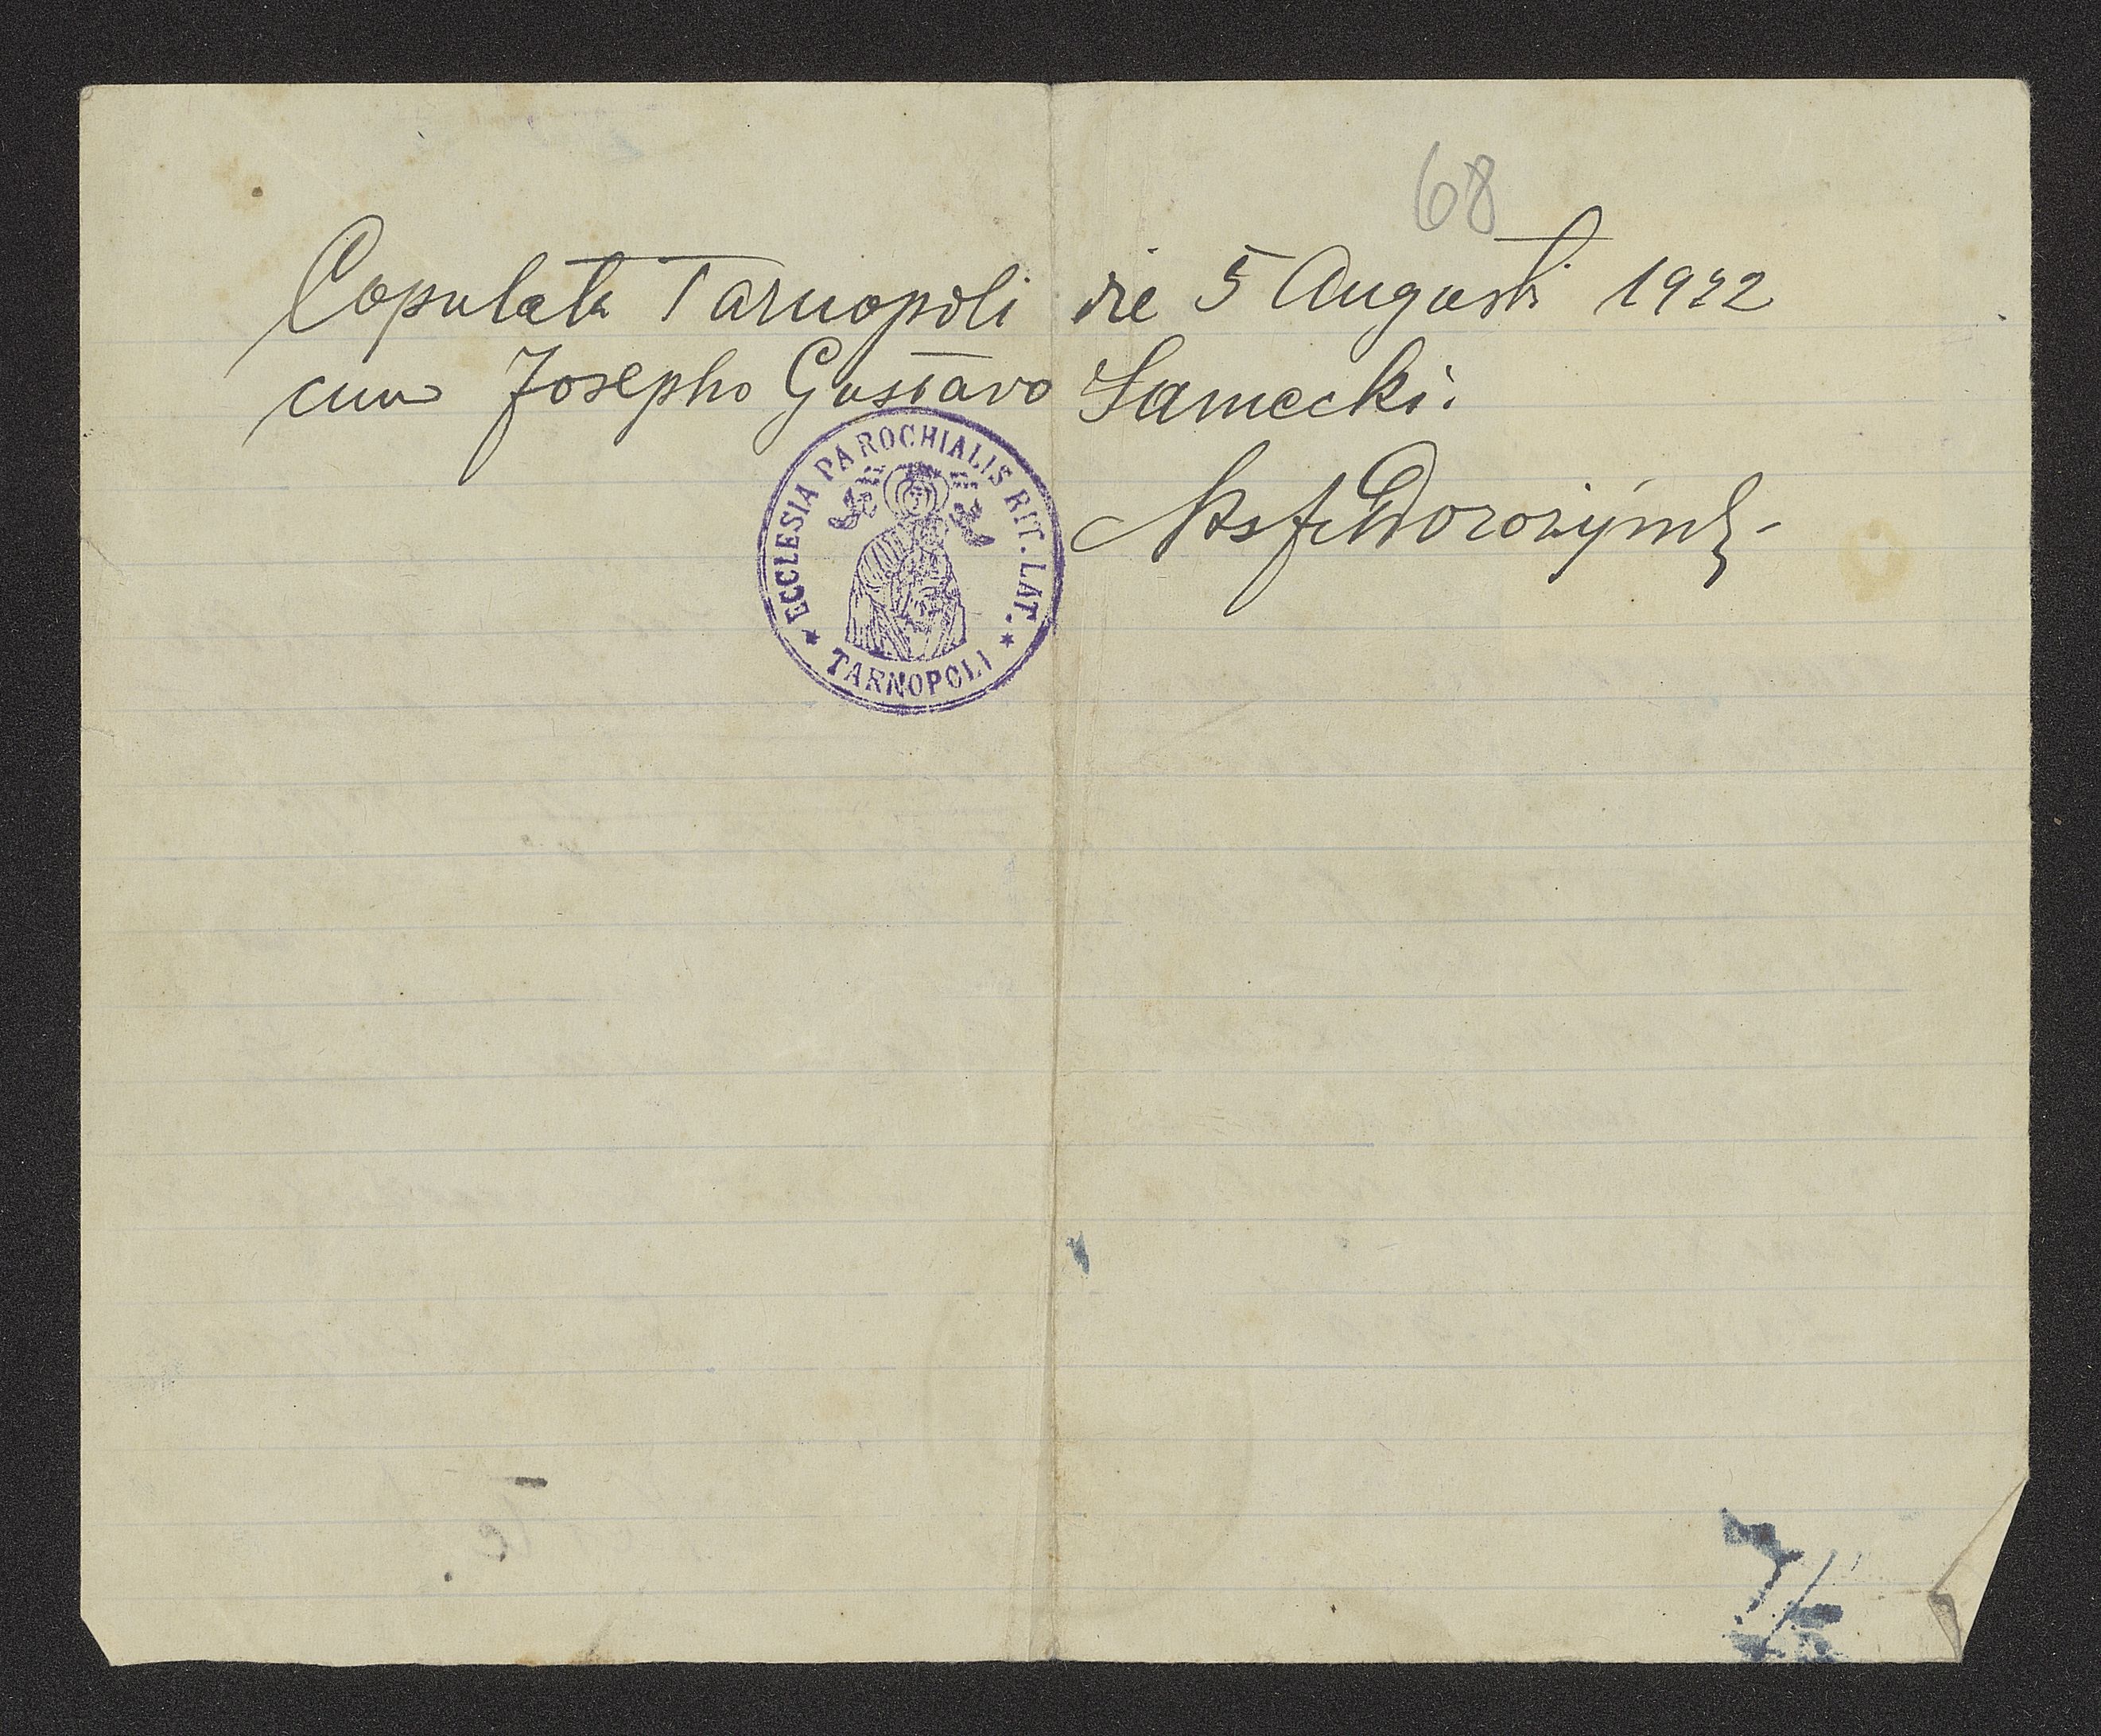 68
Copulata Tarnopoli die 5 Augusti 1922
cum Josepho Gustavo Samecki.
ECCLESIA PAROCHIALIS RIT. LAT.
* TARNOPOLI *